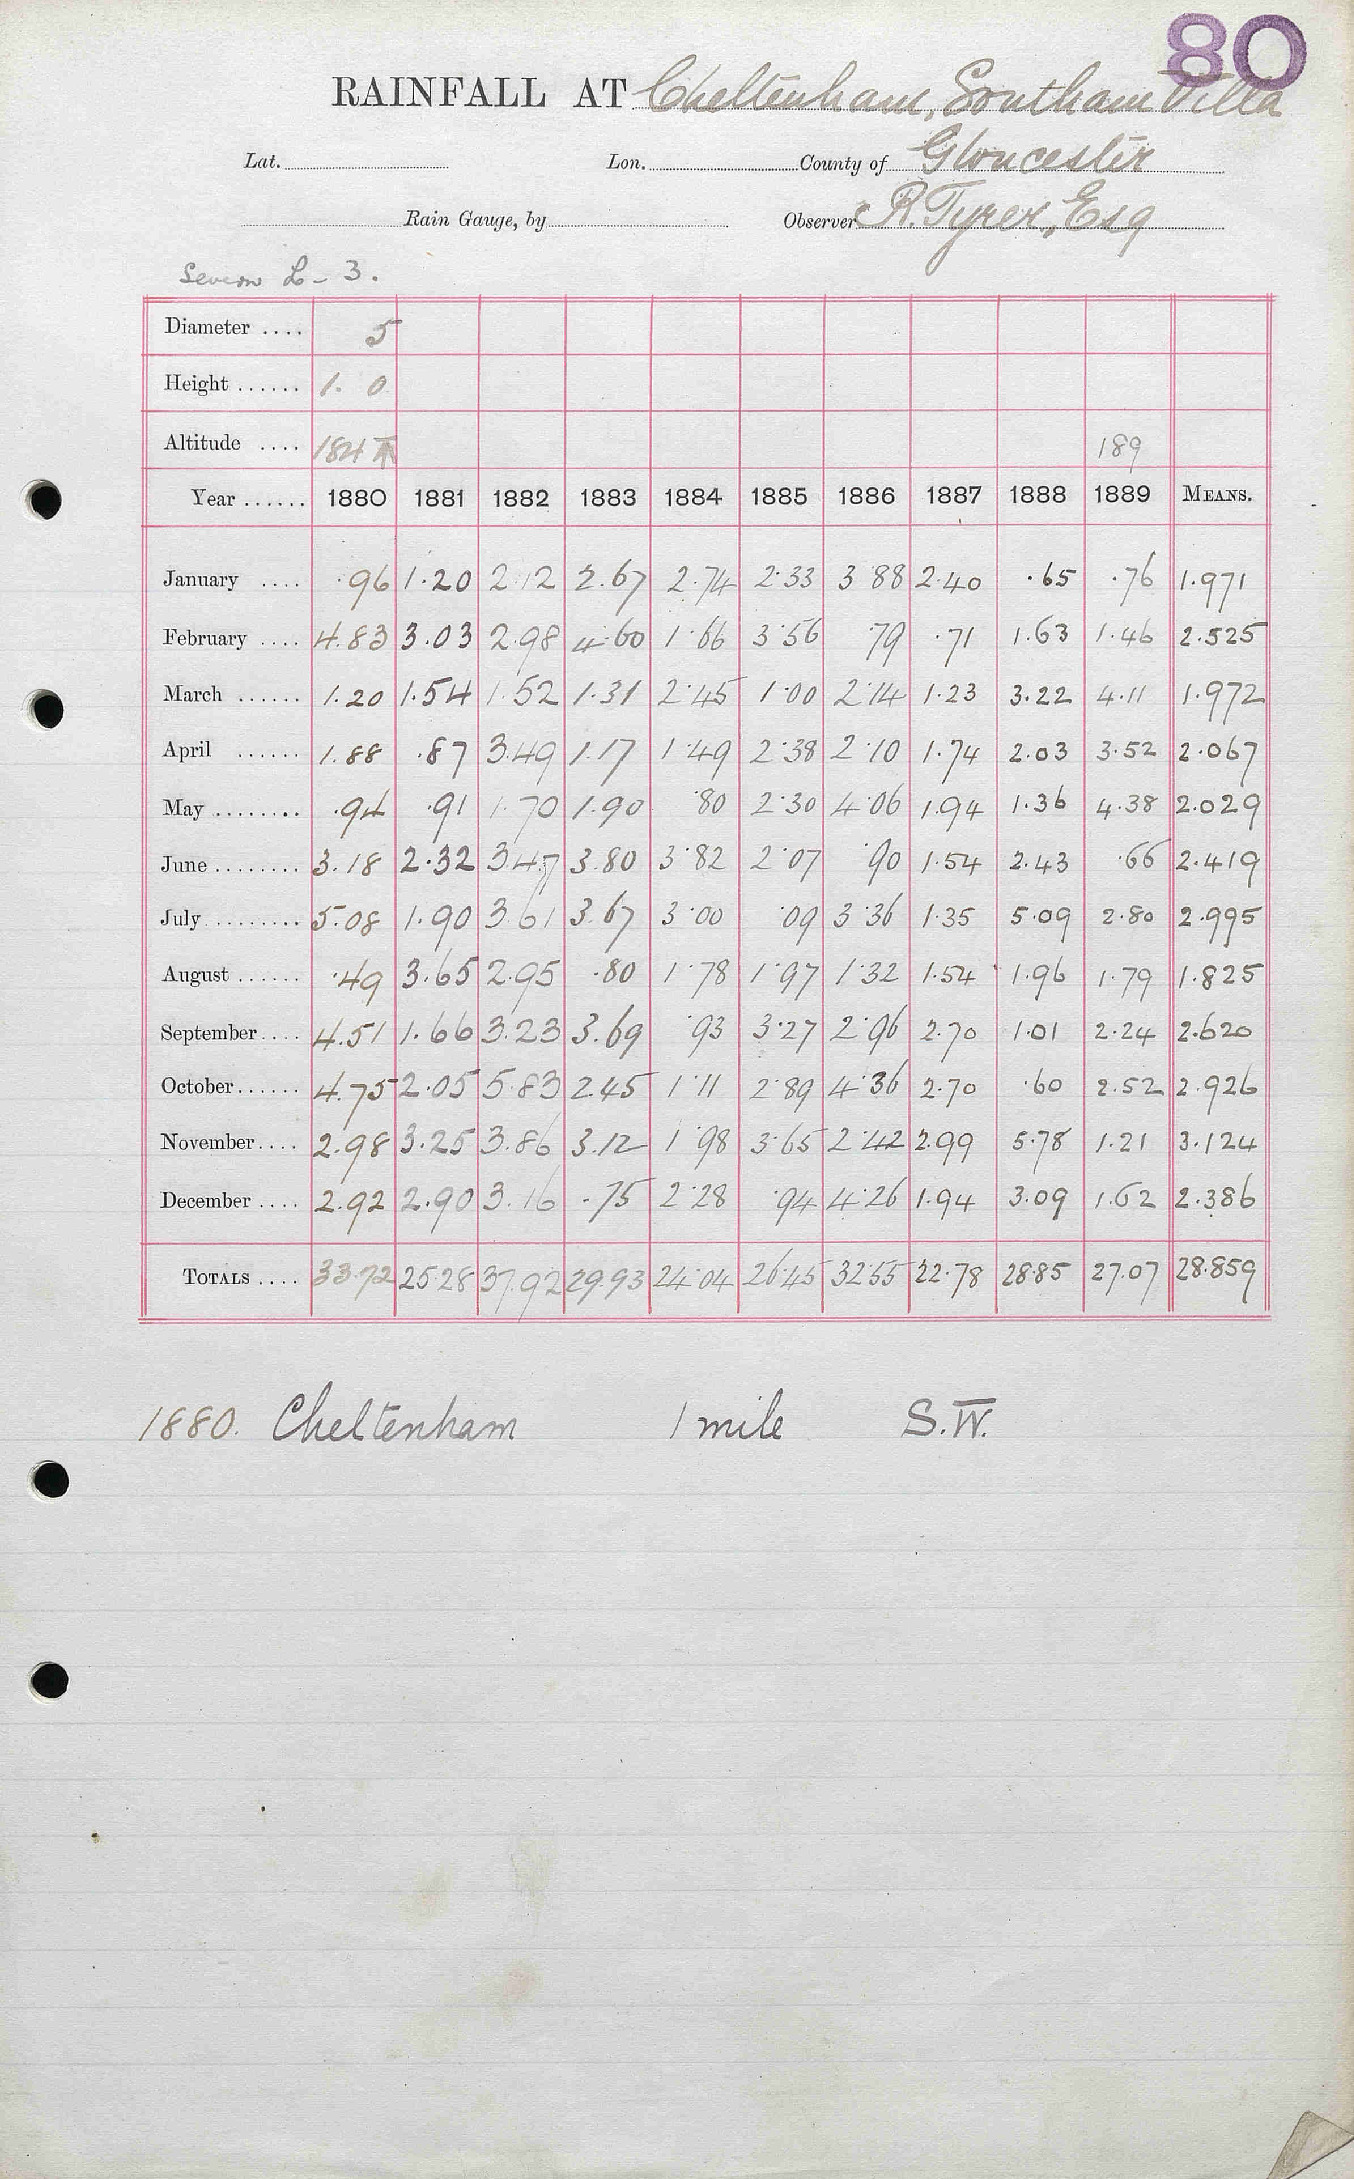 80
RAINFALL AT Cheltenham, Southam Villa
Lat. Lon. County of Gloucester
Rain Gauge, by Observer R. Tyrer, Esq
Severn L - 3.
Diameter .... 5
Height ...... 1. 0
Altitude .... 184 189
Year ...... 1880 1881 1882 1883 1884 1885 1886 1887 1888 1889 MEANS.
January .... .96 1.20 2.12 2.67 2.74 2.33 3.88 2.40 .65 .76 1.971
February .... 4.83 3.03 2.98 4.60 1.66 3.56 .79 .71 1.63 1.46 2.525
March ...... 1.20 1.54 1.52 1.31 2.45 1.00 2.14 1.23 3.22 4.11 1.972
April ...... 1.88 .87 3.49 1.17 1.49 2.38 2.10 1.74 2.03 3.52 2.067
May ........ .94 .91 1.70 1.90 .80 2.30 4.06 1.94 1.36 4.38 2.029
June ........ 3.18 2.32 3.47 3.80 3.82 2.07 .90 1.54 2.43 .66 2.419
July ......... 5.08 1.90 3.61 3.67 3.00 .09 3.36 1.35 5.09 2.80 2.995
August ...... .49 3.65 2.95 .80 1.78 1.97 1.32 1.54 1.96 1.79 1.825
September .... 4.51 1.66 3.23 3.69 .93 3.27 2.96 2.70 1.01 2.24 2.620
October ...... 4.75 2.05 5.83 2.45 1.11 2.89 4.36 2.70 .60 2.52 2.926
November .... 2.98 3.25 3.86 3.12 1.98 3.65 2.42 2.99 5.78 1.21 3.124
December .... 2.92 2.90 3.16 .75 2.28 .94 4.26 1.94 3.09 1.62 2.386
TOTALS .... 33.72 25.28 37.92 29.93 24.04 26.45 32.55 22.78 28.85 27.07 28.859
1880. Cheltenham 1 mile S.W.